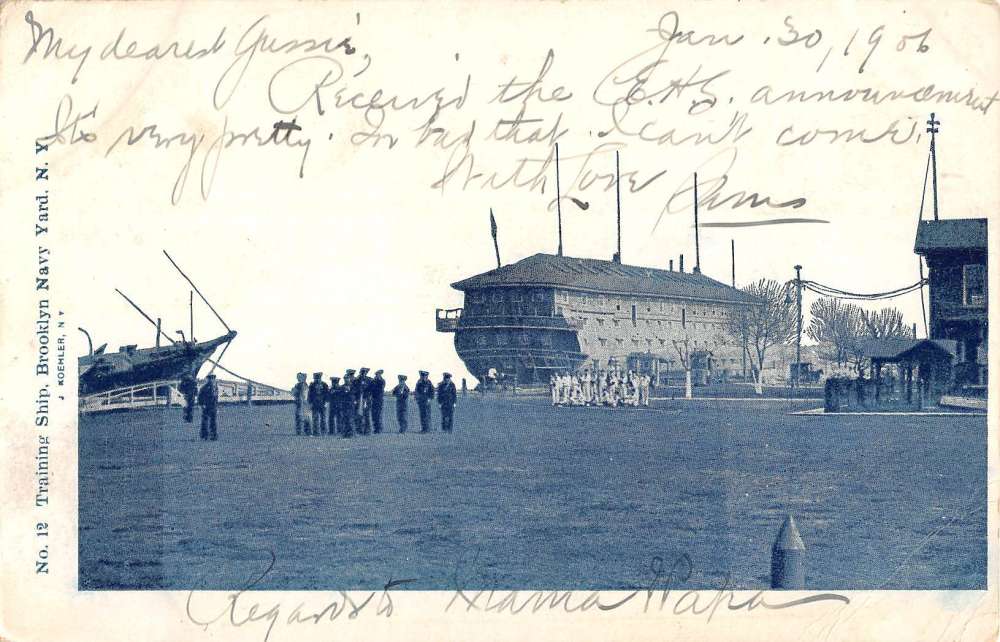 My dearest Gussie,
Jan. 30, 1906
Received the E.H.S. announcement
It's very pretty. Im bad that I can't come.
With Love
Regards to Mama Papa
No. 12 Training Ship, Brooklyn Navy Yard. N. Y.
J KOEHLER, N Y